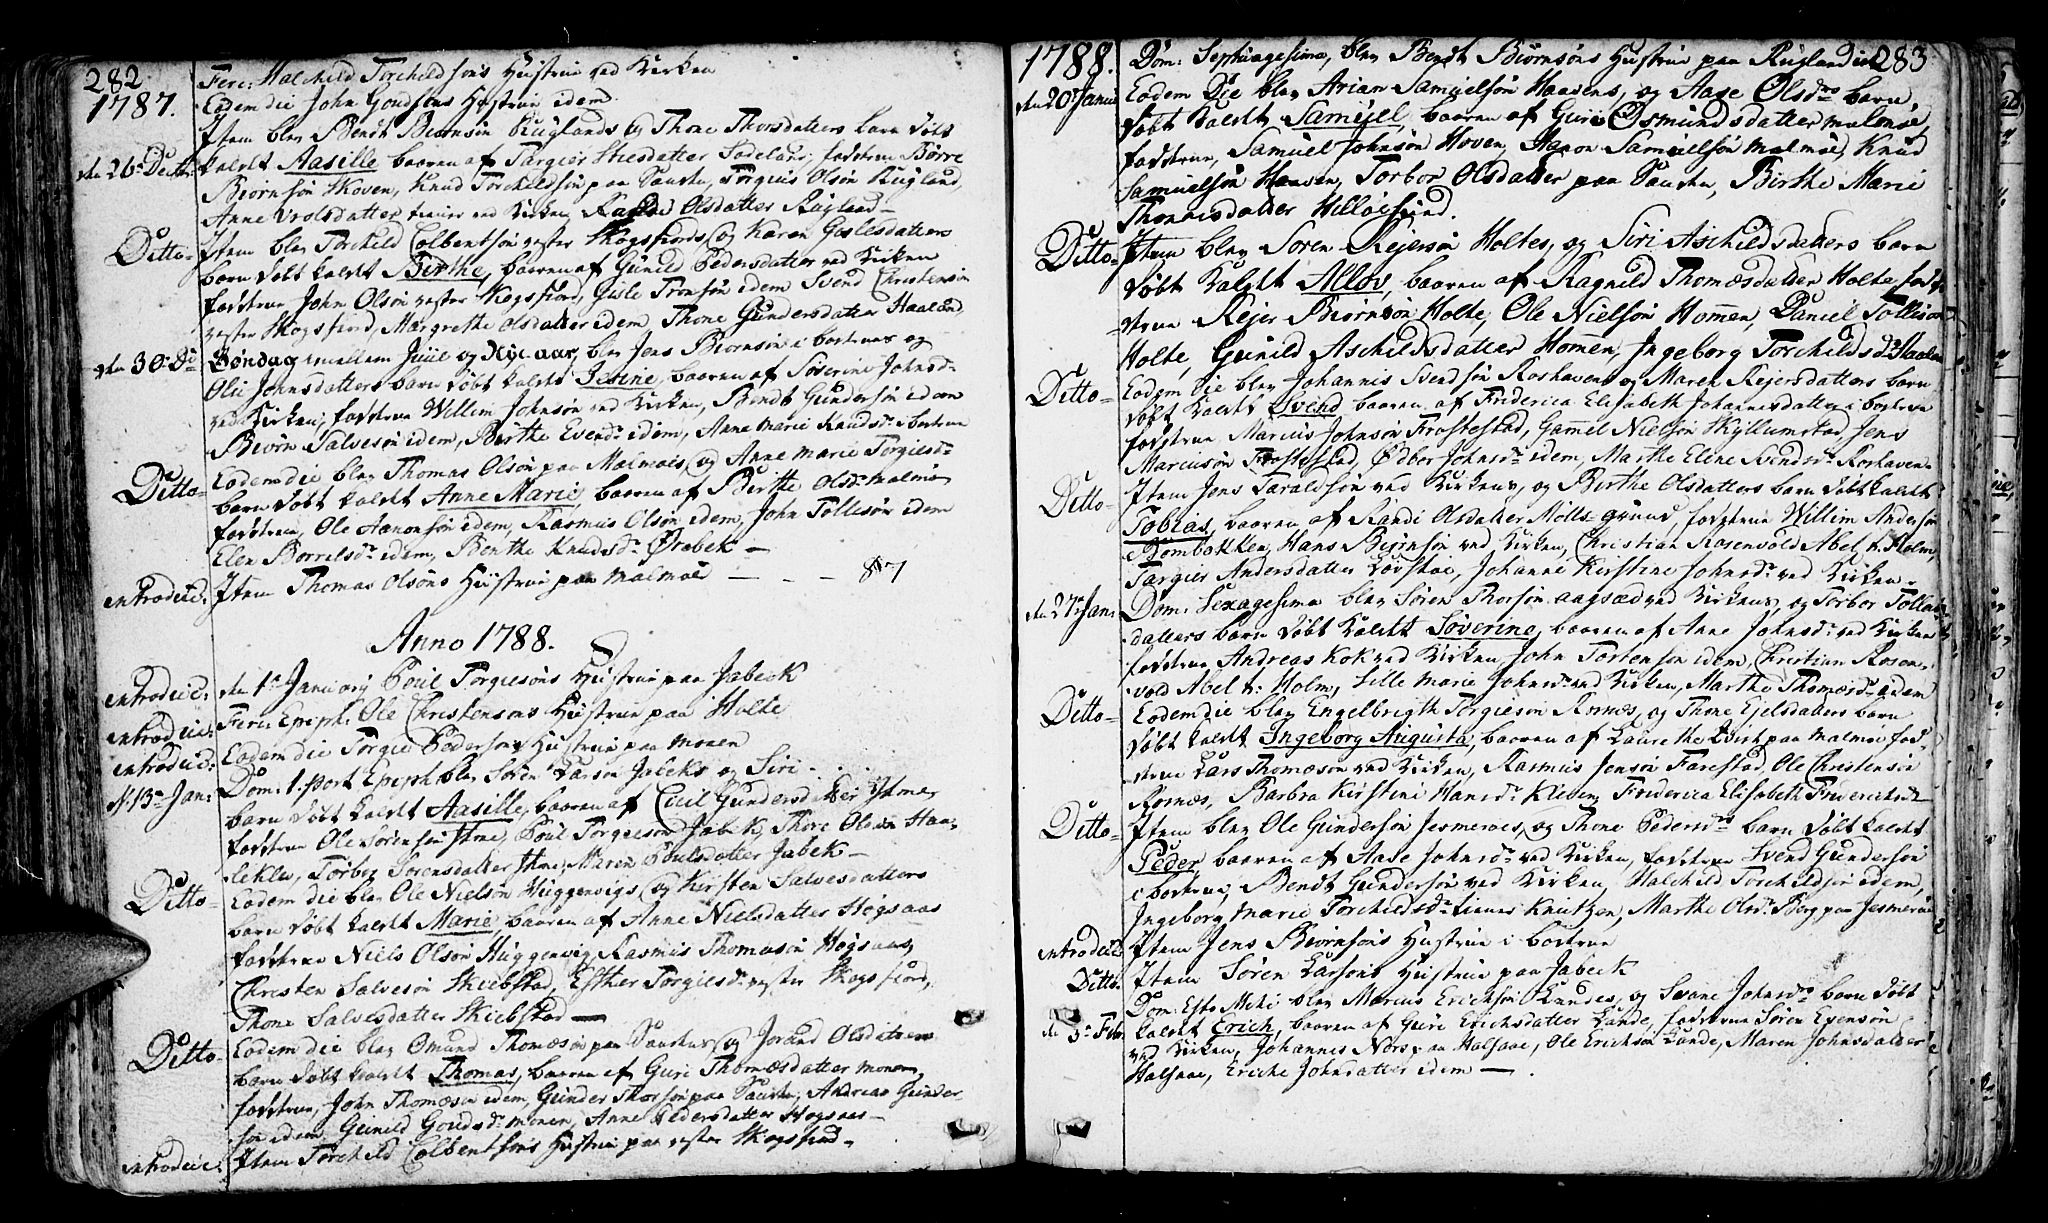 282.
1787.
Fer: Halchild Torchildsøns Hustrue ved Kirken
Eodem die John Goudsens Hustrue idem.
Item blev Bendt Biørnsøn Ruglands og Thone Thorsdatters barn døbt
den 26de Decbr: kaldt Aasille baaren af Targier Stiesdatter Sodeland, fadderne Børre
Biørnsøn Skoven, Knud Torchildsøn paa Sausten, Torgius Olsøn Rugland,
Anne Urolsdatter tienner ved Kirken, Olsdatter Rugland
Ditto- Item blev Torchild Colbentsøn vester Skogsfiords og Karen Gislesdatters
barn døbt kaldt Berthe, baaren af Gunild Pedersdatter ved Kirken
fadderne John Olsøn vester Skogsfiord, Gisle Tronsøn idem Svend Christensøn
vester Skogsfiord, Margrethe Olsdatter idem, Thone Gundersdatter Haaland,
den 30 Søndag imellem Juul og Nyt aar, blev Jens Biørnsøn i bortnes og
Oli Johnsdatters barn døbt kaldt Jesine, baaren af Søverine Johnsd:
ved Kirken, fadderne Willim Johnsøn ved Kirken, Bendt Gundersøn idem
Biørn Salvesøn idem, Birthe Evendsd: idem, Anne Marie Knudsd: i bortnes
Ditto- Eodem die blev Thomas Olsøn paa Malmøes, og Anne Marie Torgiesd:
barn døbt kaldt Anne Marie, baaren af Birthe Olsd: Malmø
fadderne, Ole Aanonsøn idem, Rasmus Olsøn idem, John Tollisøn idem
Elen Borrelsd: idem, Benthe Knudsd: Ørebek
introduc: Item Thomas Olsøns Hustrue paa Malmøe - - - 87
Anno 1788.
introduc: den 1te January Poul Torgiesøns Hustrue paa Jabeck
introduc: Feri: Epiph: Ole Christensøns Hustrue paa Holte
introduc: Eodem die Torgie Pedersøns Hustrue paa Monen
d. 13 Jan: Dom: 1. post Epiph. blev Søren Larsøn Jabeks og Siri
barn døbt kaldt Aasille, baaren af Cicil Gundersdatter Ihme,
fadderne Ole Sørensøn Ihme, Poul Torgiesøn Jabek, Thore Olsøn Haa-
leklev, Torbor Sørensdatter Ihme, Maren Poulsdatter Jabek
Ditto- Eodem die blev Ole Nielsøn Huggenvigs, og Kirsten Salvesdatters
barn døbt kaldt Marie, baaren af Anne Nielsdatter Høgsaas
fadderne Niels Olsøn Huggenvig, Rasmus Thomasøn Høgsaas,
Christen Salvesøn Skiebstad, Esther Torgiesd: vester Skogsfiord,
Thone Salvesdatter Skiebstad
Ditto- Eodem die blev Omund Thomæsøn paa Saustens, og Jorand Olsdatters
barn døbt kaldt Thomas, baaren af Guri Thomæsdatter Monen,
fadderne, John Thomæsøn idem, Gunder Thorsøn paa Sausten, Andreas Gunder-
søn idem, Gunild Goudsd: Monen, Anne Pedersdatter Høgsaas
introduc: Item Torchild Colbentsøns Hustrue paa vester Skogsfiord
1788.
283
Dom: Septuagesima, blev Bendt Biørnsøns Hustrue paa Rugland
den 20de Janu: Eodem Die blev Arian Samuelsøn Haavens, og Aase Olsdrs barn,
døbt kaldt Samuel, baaren af Guri Osmundsdatter Malmøe,
fadderne, Samuel Johnsøn Hoven, Haaon Samuelsøn Malmøe, Knud
Samuelsøn Haaven, Torbor Olsdatter paa Sausten, Birthe Marie
Thomisdatter Hilløesund.
Ditto- Item blev Søren Rejersøn Holtes, og Siri Aschildsdatters barn
døbt kaldt Allov, baaren af Ragnild Thomæsdatter Holte, fad-
derne Rejer Biørnsøn Holte, Ole Nielsøn Homen, Daniel Tollisøn
Holte, Gunild Aschildsdatter Homen, Ingeborg Torchildsdr Haalan
Ditto- Eodem die blev Johannis Svendsøn Roshavens og Maren Rejersdatters barn
døbt kaldt Svend, baaren af Friderica Elisabeth Johannesdatter i bortnes
fadderne Marcus Johnsøn Frostestad, Gamel Nielsøn Skyllumstad, Jens
Marcusøn Frostestad, Ødbor Johnsdr idem, Marthe Elene Svendsdr Roshaven
Ditto- Item Jens Taraldsøn ved Kirkens, og Birthe Olsdatters barn døbt kaldt
Tobias, baaren af Randi Olsdatter Molls-grund, fadderne Willim Andersøn
Dombakken, Hans Biørnsøn ved Kirken, Christian Rosenvold Abel v. Holm,
Targier Andersdatter, Johanne Kirstine Johnsdr ved Kirken
den 27de Jan: Dom: Sexagesima blev Søren Thorsøn ved Kirkens, og Torbor Tollis-
datters barn døbt kaldt Søverine, baaren af Anne Johnsdr ved Kirken
fadderne, Andreas Kok ved Kirken, John Tortensøn idem, Christian Rosen-
vold Abel v: Holm, Lille Marie Johnsdr ved Kirken, Marthe Thomæsdr idem
Ditto- Eodem die blev Engelbrigth Torgiesøn Rosnæs, og Thone Ejelsdatters barn
døbt kaldt Ingeborg Augusta, baaren af Laurethe Qvist paa Malmøe fad-
derne Lars Thomæsøn ved Kirken, Rasmus Jensøn Farestad, Ole Christensøn
Rosnæs, Barbra Kirstine Hansdr Kleven, Friderica Elisabeth Friderichsdr
Ditto- Item blev Ole Gundersøn Jesmerøes, og Thone Pedersdrs barn døbt kaldt
Peder, baaren af Aase Johnsdr ved Kirken, fadderne Svend Gundersøn
i bortnes, Bendt Gundersøn ved Kirken, Halchild Torchildsøn idem,
Ingeborg Marie Torchildsdr tienner Knutzen, Marthe Olsdr Berg paa Jesmerøe
introduc: Item Jens Biørnsøns Hustrue i bortnes
Ditto. Item Søren Larsøns Hustrue paa Jabeck
Dom: Esto Mihi blev Marcus Erichsøn Lundes, og Svane Johnsdrs barn døbt
de 3de Febr: kaldt Erich, baaren af Guri Erichsdatter Lunde, fadderne Søren Evensøn
ved Kirken, Johannes Nors paa Halsaae, Ole Erichsøn Lunde, Maren Johnsdatter
Halsaae, Eriche Johnsdatter idem